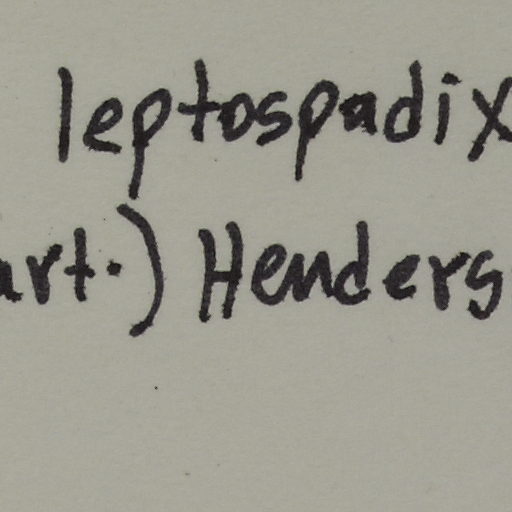 leptospadix
art.) Henders